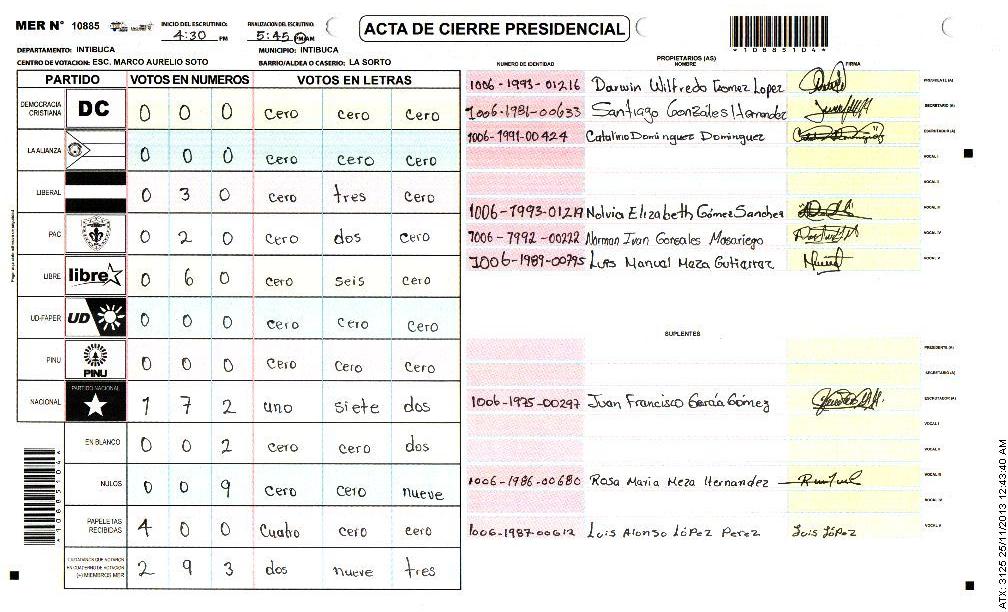 MER N° 10885
INICIO DEL ESCRUTINIO: 4:30 PM
FINALIZACION DEL ESCRUTINIO: 5:45 PM AM
ACTA DE CIERRE PRESIDENCIAL
*10885104*
DEPARTAMENTO: INTIBUCA MUNICIPIO: INTIBUCA
CENTRO DE VOTACION: ESC. MARCO AURELIO SOTO BARRIO/ALDEA O CASERIO: LA SORTO
PARTIDO VOTOS EN NUMEROS VOTOS EN LETRAS
DEMOCRACIA CRISTIANA DC 0 0 0 cero cero cero
LA ALIANZA 0 0 0 cero cero cero
LIBERAL 0 3 0 cero tres cero
PAC 0 2 0 cero dos cero
LIBRE libre 0 6 0 cero seis cero
UD-FAPER UD 0 0 0 cero cero cero
PINU PINU 0 0 0 cero cero cero
NACIONAL PARTIDO NACIONAL 1 7 2 uno siete dos
EN BLANCO 0 0 2 cero cero dos
NULOS 0 0 9 cero cero nueve
PAPELETAS RECIBIDAS 4 0 0 cuatro cero cero
CIUDADANOS QUE VOTARON EN CUADERNO DE VOTACION (+) MIEMBROS MER 2 9 3 dos nueve tres
*10885104*
PROPIETARIOS (AS)
NUMERO DE IDENTIDAD NOMBRE FIRMA
1006-1993-01216 Darwin Wilfredo Gomez Lopez PRESIDENTE (A)
1006-1981-00633 Santiago Gonzáles Hernandez SECRETARIO (A)
1006-1991-00424 Catalino Dominguez Dominguez ESCRUTADOR (A)
VOCAL I
VOCAL II
1006-1993-01219 Nolvia Elizabeth Gómez Sanchez VOCAL III
1006-1992-00222 Norman Ivan Gonsales Masariego VOCAL IV
1006-1989-00795 Luis Manual Meza Gutierrez VOCAL V
SUPLENTES
PRESIDENTE (A)
SECRETARIO (A)
1006-1975-00297 Juan Francisco García Gómez ESCRUTADOR (A)
VOCAL I
VOCAL II
1006-1986-00680 Rosa Maria Meza Hernandez VOCAL III
VOCAL IV
1006-1987-00612 Luis Alonso López Perez Luis López VOCAL V
ATX: 3125 25/11/2013 12:43:40 AM